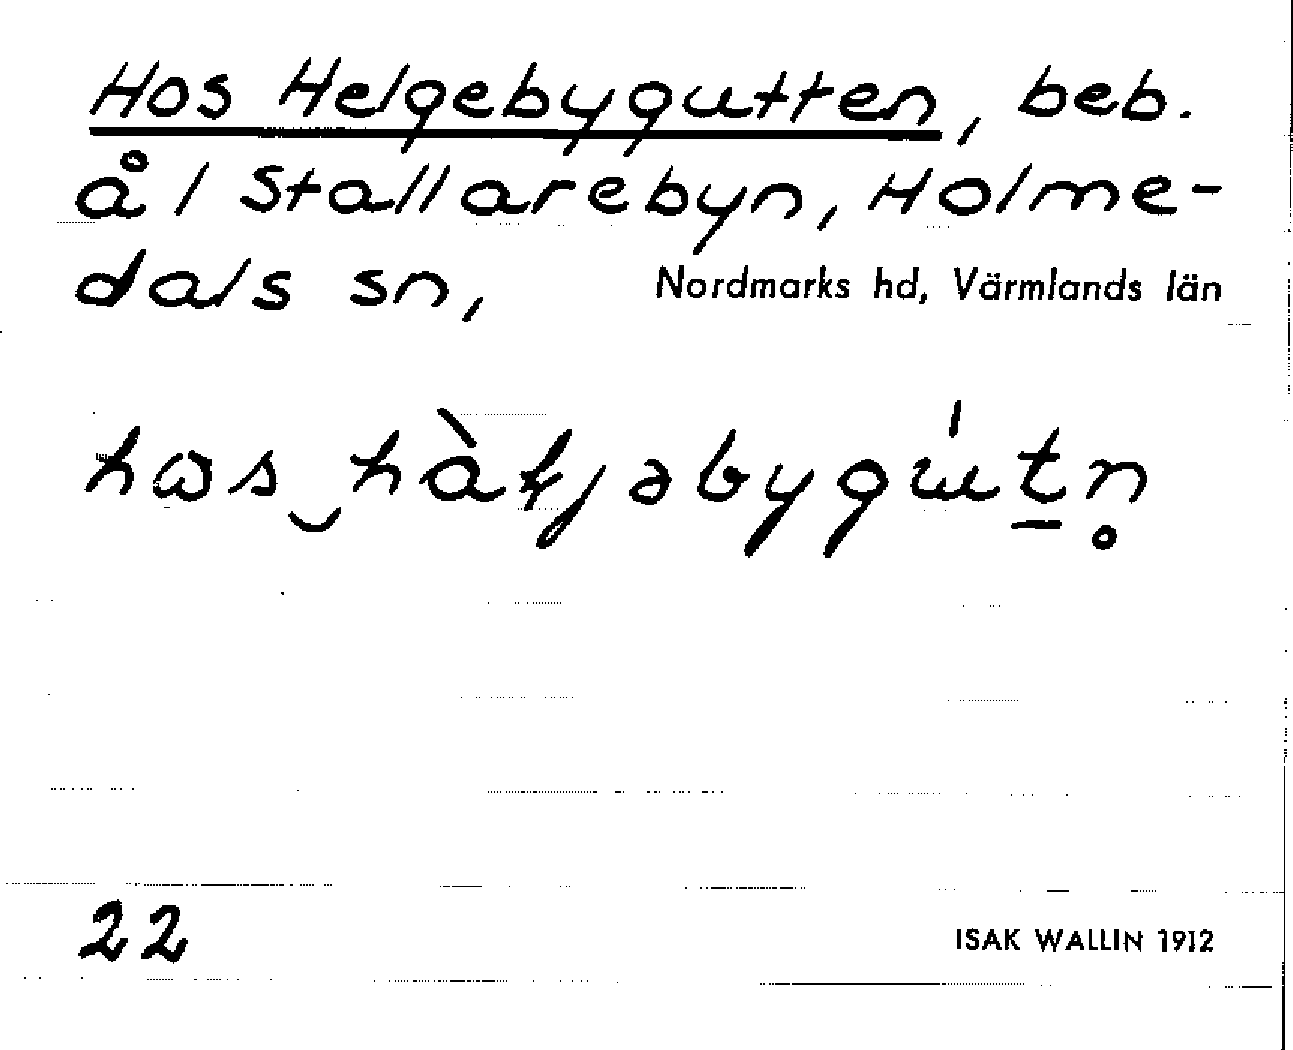 Hos Helgebygutten, beb.
å / Stallarebyn, Holme-
dals sn, Nordmarks hd, Värmlands län
22
ISAK WALLIN 1912